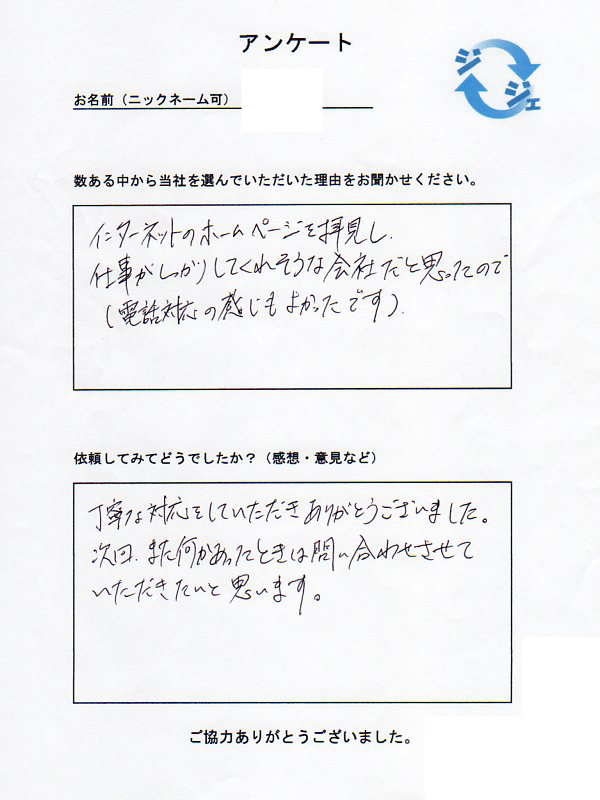 アンケート
ジジェ
お名前（ニックネーム可）
数ある中から当社を選んでいただいた理由をお聞かせください。
インターネットのホームページを拝見し、
仕事がしっかりしてくれそうな会社だと思ったので
（電話対応の感じもよかったです）.
依頼してみてどうでしたか？（感想・意見など）
丁寧な対応をしていただきありがとうございました。
次回、また何かあったときは問い合わせさせて
いただきたいと思います。
ご協力ありがとうございました。